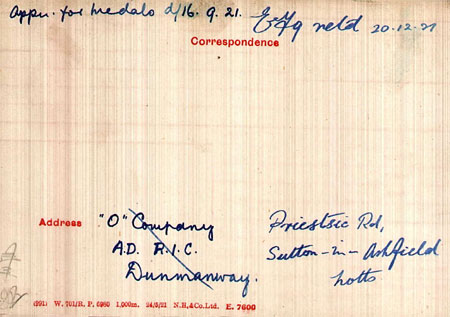 Appn. for medals d/16.9.21. EF9 retd 20.12.21
Correspondence
Address "O" Company
A.D. R.I.C.
Dunmanway.
Priestsic Rd,
Sutton-in-Ashfield
Notts
(291) W. 701/R.P. 6960 1,000m. 24/5/21 N.H.&Co.Ltd. E. 7606